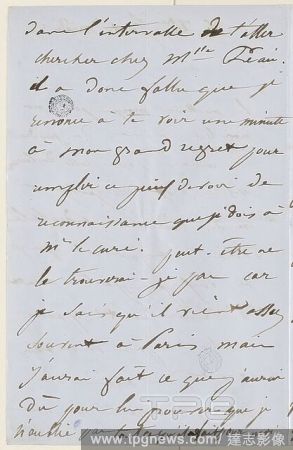 dans l'intervalle de t'aller
chercher chez Mlle Féau.
il a donc fallu que je
renonce à te voir une minute
à mon grand regret pour
remplir ce pieux devoir de
reconnaissance que je dois à
Mr le curé. peut-être ne
le trouverai-je pas car
je sais qu'il vient assez
souvent à Paris mais
j'aurai fait ce que j'aurai
dû pour lui pourvu que je
n'oublie pas
www.tpgnews.com / 達志影像